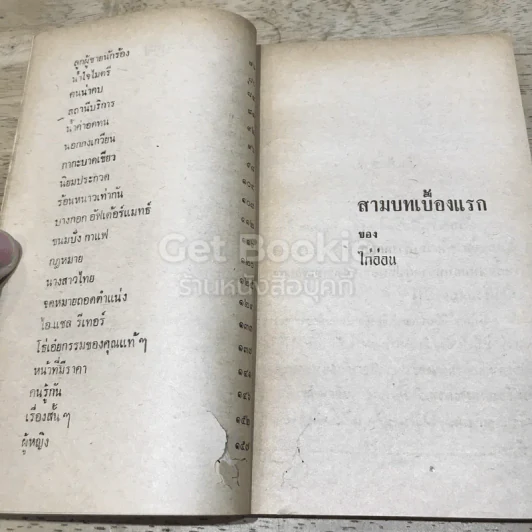 ลูกผู้ชายนักร้อง
น้ำใจไมตรี
คนน่าคบ
สถานีบริการ
น้ำคำอดทน
นอกกงเกวียน
กากะบาดเขียว
นิยมประกวด ๑๐๔
ร้อนหนาวเท่ากัน
บางกอก อัฟเต้อร์แมทธ์
ขนมปัง กาแฟ
กฎหมาย
นางสาวไทย
จดหมายถอดตำแหน่ง
ไอ.แซล รีเทอร์
โธ่เอ๋ยกรรมของคุณแท้ ๆ ๑๓๙
หน้าที่มีราคา
คนรู้กัน ๑๔๖
เรื่องสั้น ๆ ๑๕๒
ผู้หญิง ๑๕๗
สามบทเบื้องแรก
ของ
ไก่อ่อน
Get Bookie
ร้านหนังสือบุ๊คกี้